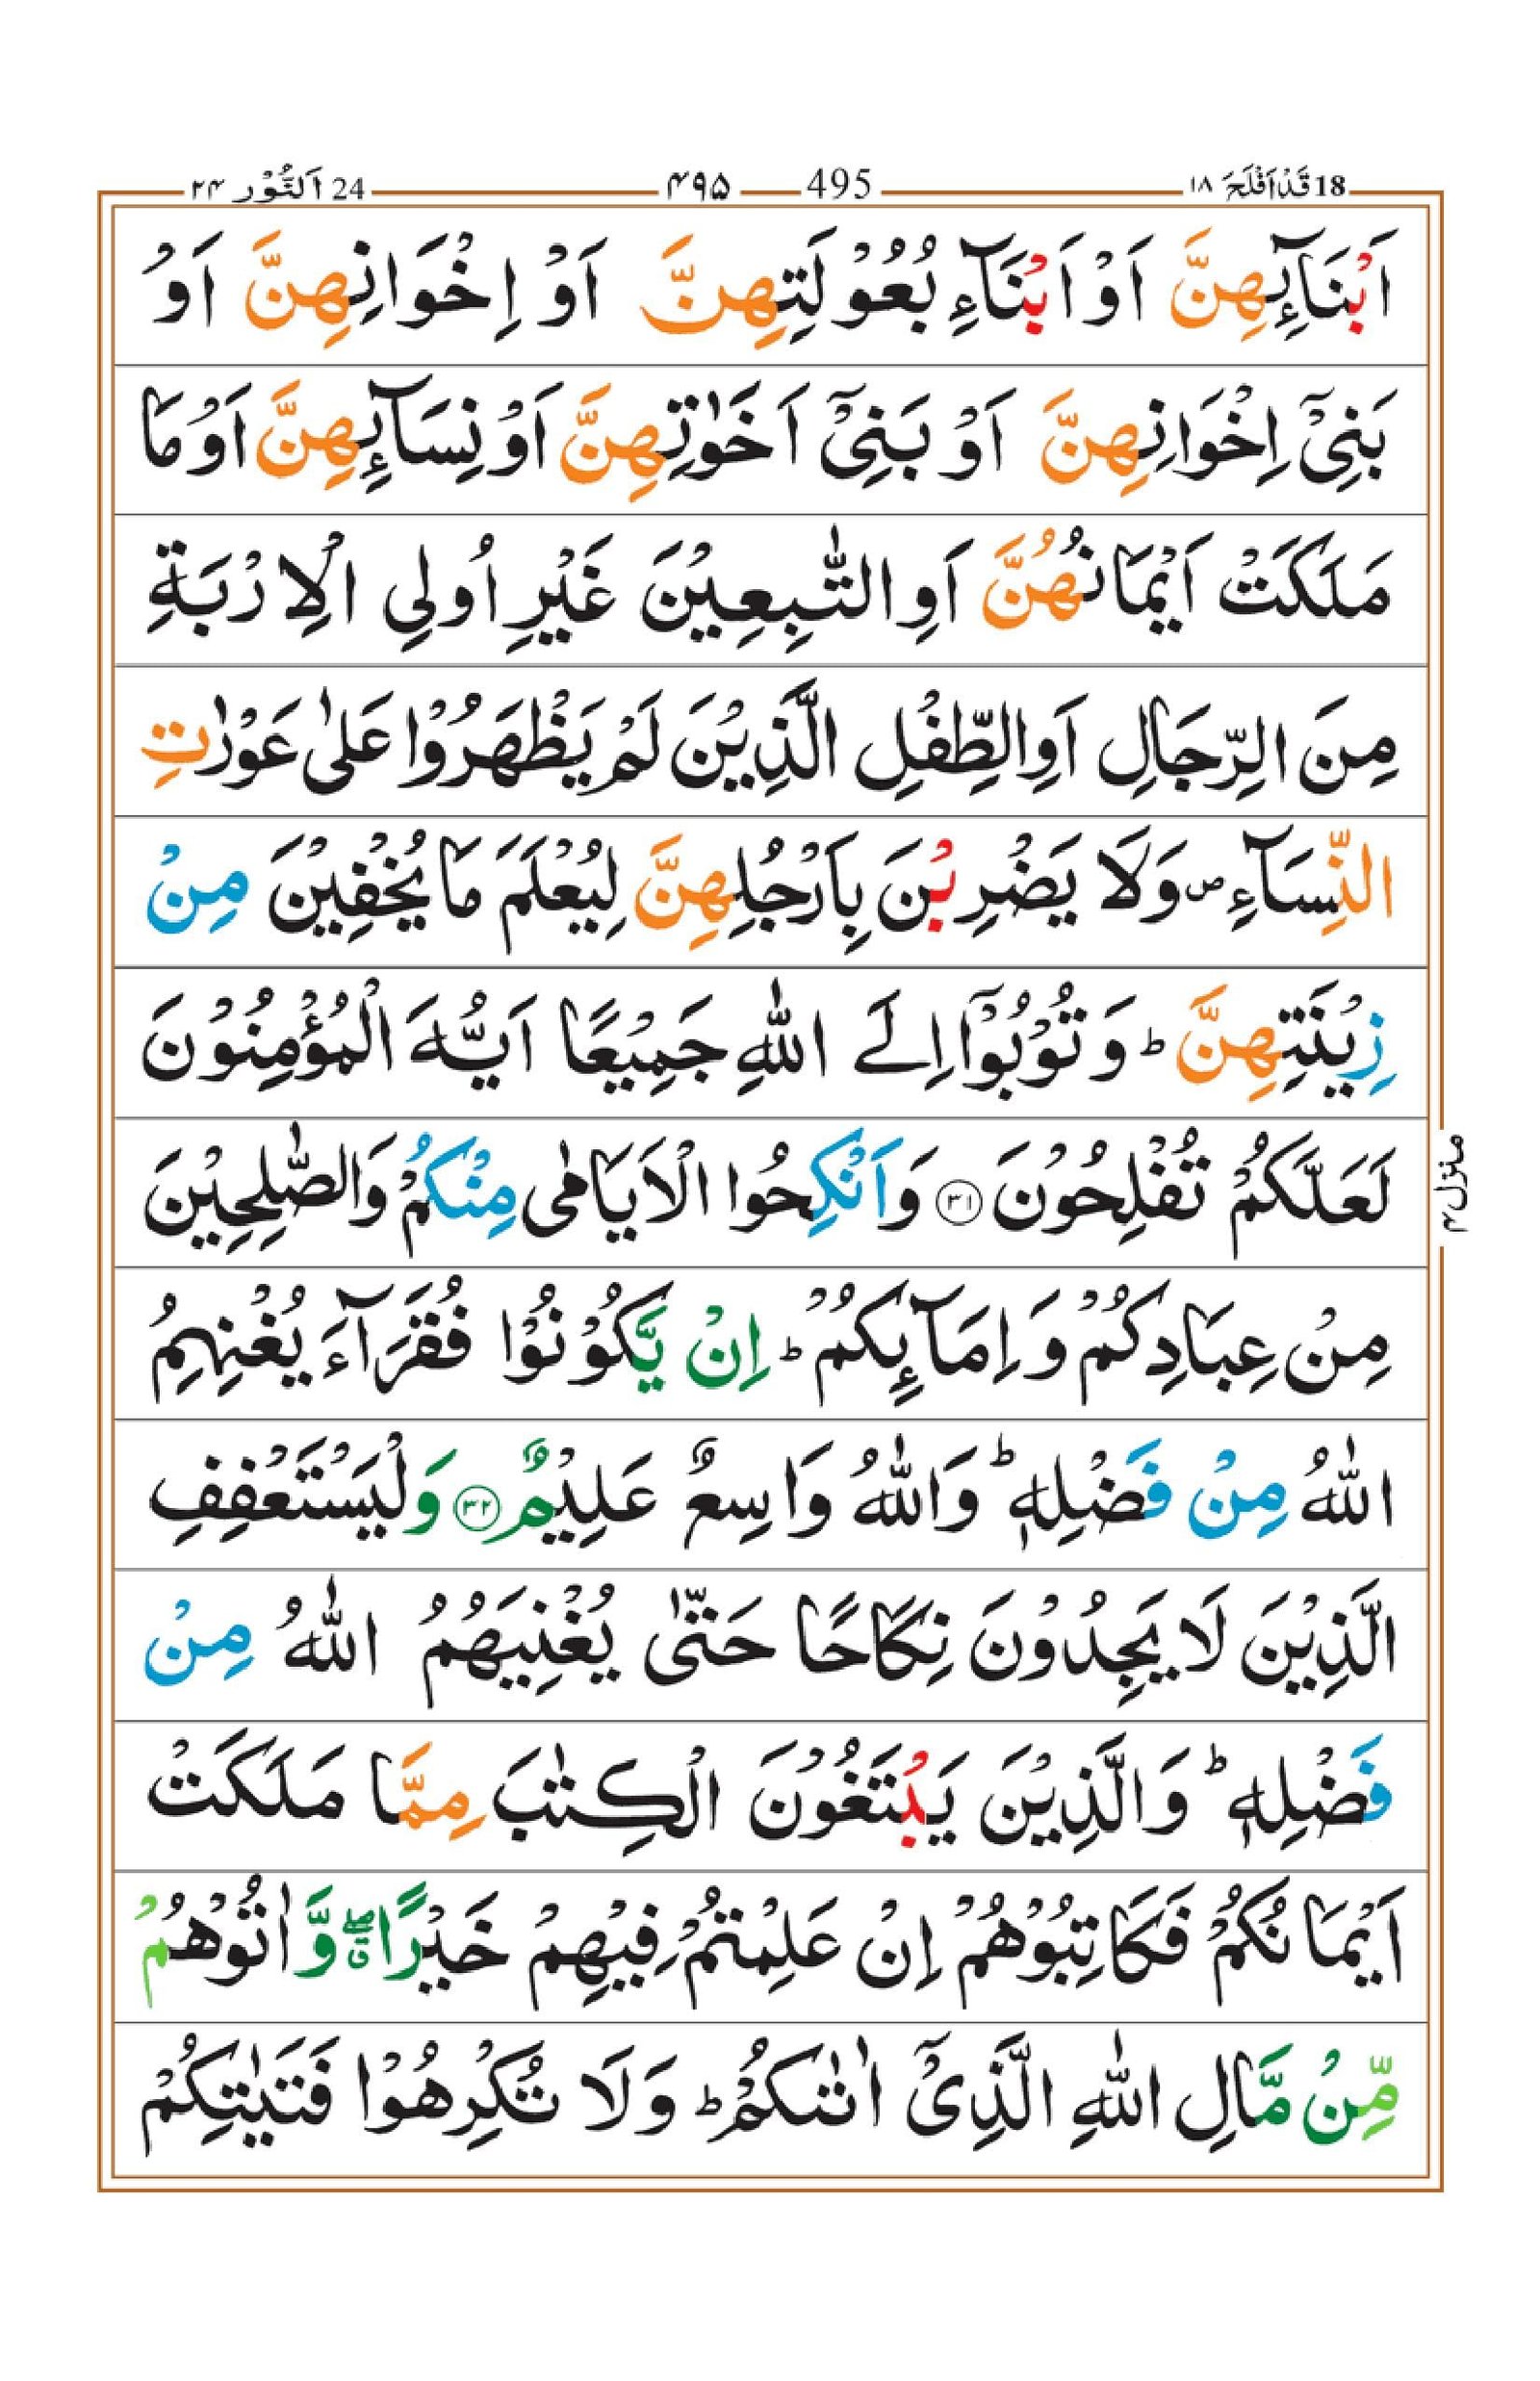 18 قَدْ اَفْلَحَ ١٨ 495 ۴۹۵ 24 اَلنُّوْر ۲۴
اَبْنَآئِهِنَّ اَوْ اَبْنَآءِ بُعُوْلَتِهِنَّ اَوْ اِخْوَانِهِنَّ اَوْ
بَنِیْۤ اِخْوَانِهِنَّ اَوْ بَنِیْۤ اَخَوٰتِهِنَّ اَوْ نِسَآئِهِنَّ اَوْ مَا
مَلَكَتْ اَیْمَانُهُنَّ اَوِ التّٰبِعِیْنَ غَیْرِ اُولِی الْاِرْبَةِ
مِنَ الرِّجَالِ اَوِ الطِّفْلِ الَّذِیْنَ لَمْ یَظْهَرُوْا عَلٰى عَوْرٰتِ
النِّسَآءِ ۪ وَلَا یَضْرِبْنَ بِاَرْجُلِهِنَّ لِیُعْلَمَ مَا یُخْفِیْنَ مِنْ
زِیْنَتِهِنَّ ؕ وَتُوْبُوْۤا اِلَى اللّٰهِ جَمِیْعًا اَیُّهَ الْمُؤْمِنُوْنَ
لَعَلَّكُمْ تُفْلِحُوْنَ ﴿۳۱﴾ وَاَنْكِحُوا الْاَیَامٰى مِنْكُمْ وَالصّٰلِحِیْنَ
مِنْ عِبَادِكُمْ وَاِمَآئِكُمْ ؕ اِنْ یَّكُوْنُوْا فُقَرَآءَ یُغْنِهِمُ
اللّٰهُ مِنْ فَضْلِهٖ ؕ وَاللّٰهُ وَاسِعٌ عَلِیْمٌ ﴿۳۲﴾ وَلْیَسْتَعْفِفِ
الَّذِیْنَ لَا یَجِدُوْنَ نِكَاحًا حَتّٰى یُغْنِیَهُمُ اللّٰهُ مِنْ
فَضْلِهٖ ؕ وَالَّذِیْنَ یَبْتَغُوْنَ الْكِتٰبَ مِمَّا مَلَكَتْ
اَیْمَانُكُمْ فَكَاتِبُوْهُمْ اِنْ عَلِمْتُمْ فِیْهِمْ خَیْرًا ۖۗ وَّاٰتُوْهُمْ
مِّنْ مَّالِ اللّٰهِ الَّذِیْۤ اٰتٰىكُمْ ؕ وَلَا تُكْرِهُوْا فَتَیٰتِكُمْ
منزل ۴